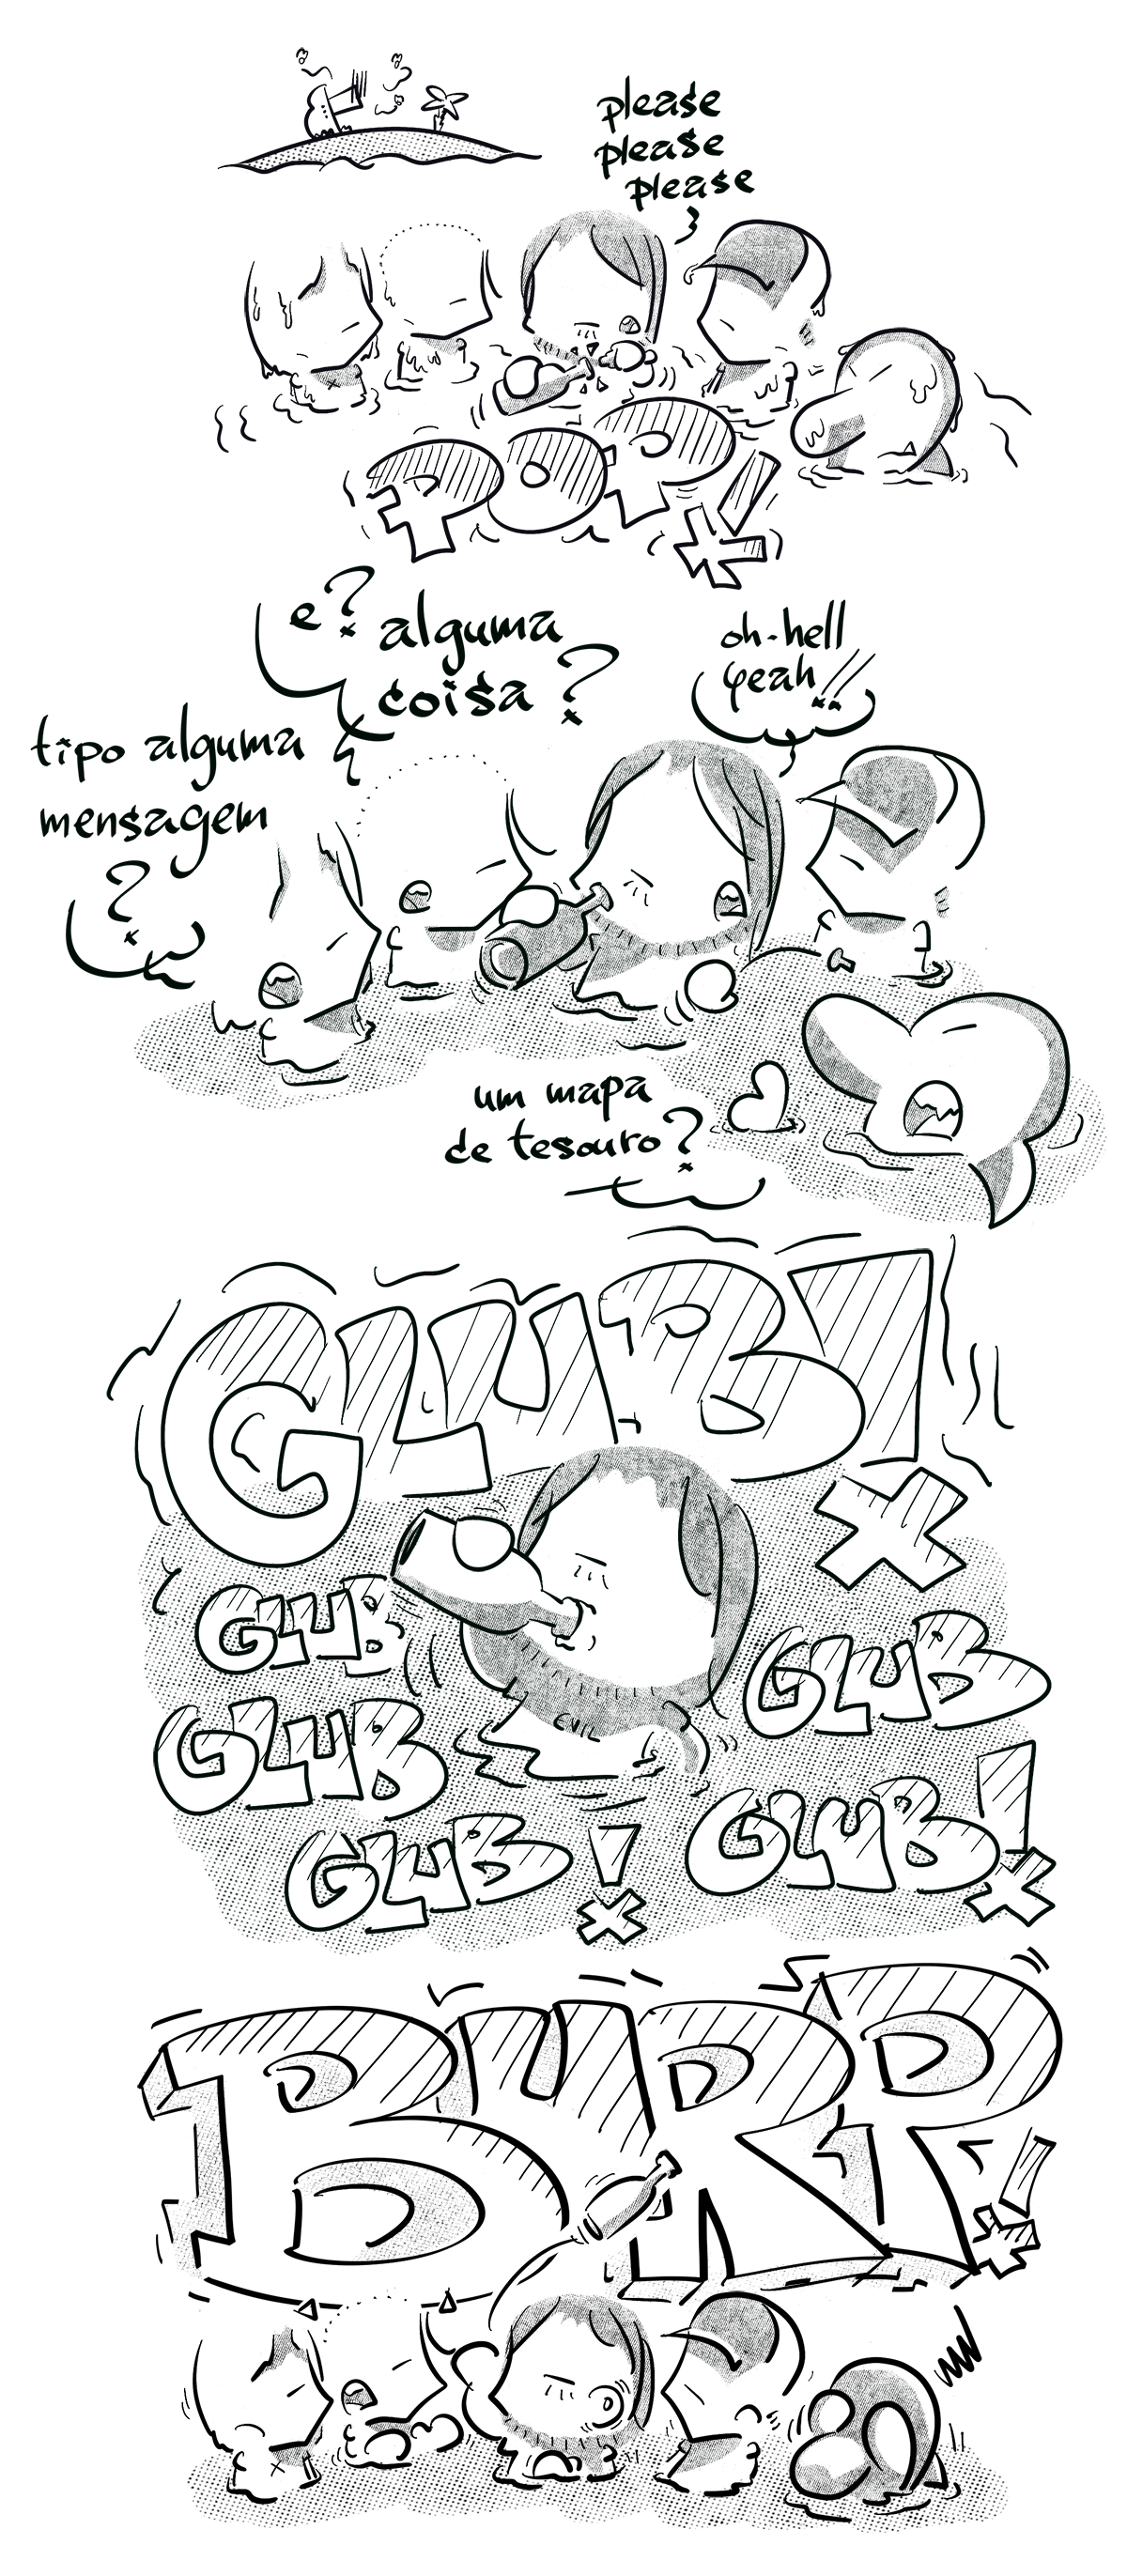 please
please
please
POP!
e? alguma
coisa?
oh-hell
yeah!!
tipo alguma
mensagem
?
um mapa
de tesouro?
GLUB!
GLUB
GLUB
GLUB
EVIL
GLUB!
GLUB!
BURP!